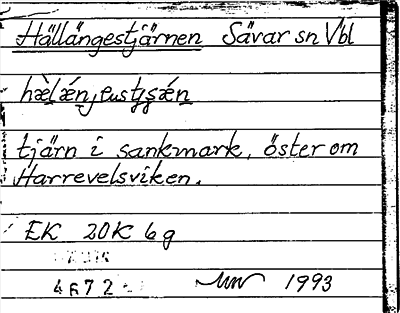 Hällängestjärnen Sävar sn Vbl
tjärn i sankmark, öster om
Harrevelsviken.
EK 20K 6g
4672
1993